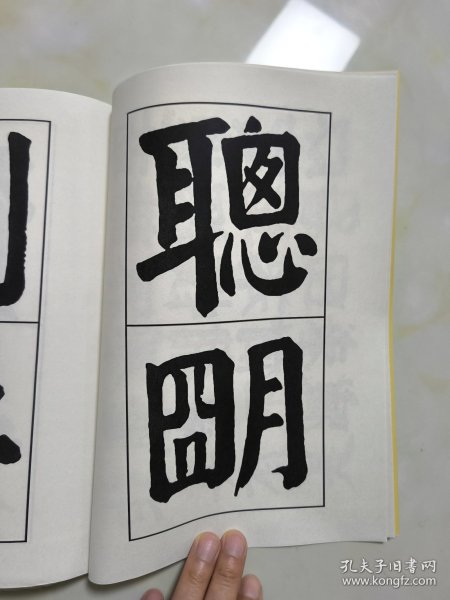 聰
明
孔夫子旧书网
www.kongfz.com